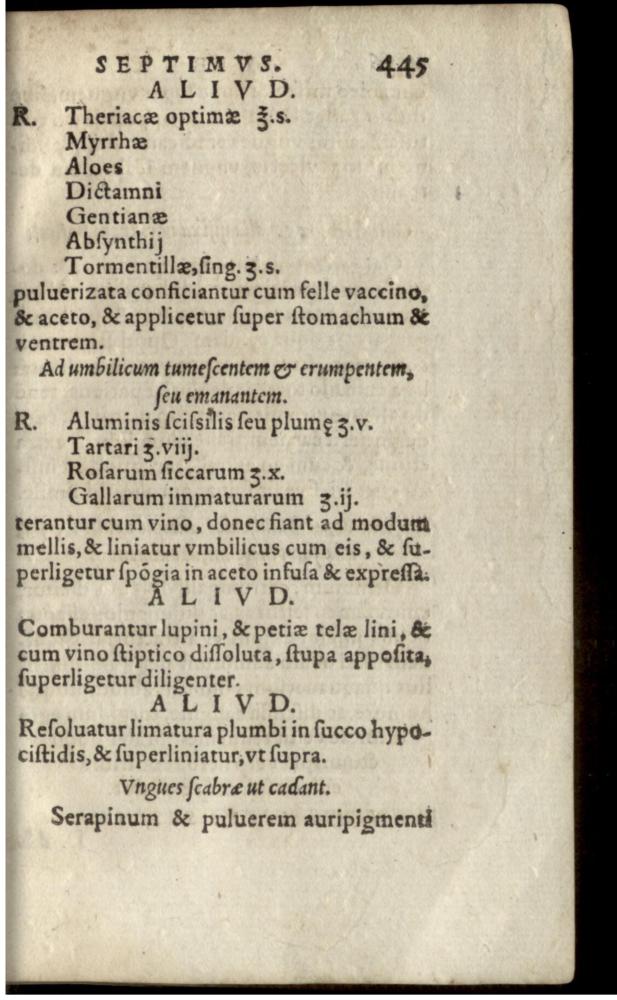 SEPTIMVS. 445
ALIVD.
R. Theriacæ optimæ ℥.s.
Myrrhæ
Aloes
Dictamni
Gentianæ
Abſynthij
Tormentillæ,ſing. ʒ.s.
puluerizata conficiantur cum felle vaccino,
& aceto, & applicetur ſuper ſtomachum &
ventrem.
Ad umbilicum tumeſcentem & erumpentem,
ſeu emanantem.
R. Aluminis ſciſsilis ſeu plumę ʒ.v.
Tartari ʒ.viij.
Roſarum ſiccarum ʒ.x.
Gallarum immaturarum ʒ.ij.
terantur cum vino, donec fiant ad modum
mellis, & liniatur vmbilicus cum eis, & ſu-
perligetur ſpōgia in aceto infuſa & expreſſa.
ALIVD.
Comburantur lupini, & petiæ telæ lini, &
cum vino ſtiptico diſſoluta, ſtupa appoſita,
ſuperligetur diligenter.
ALIVD.
Reſoluatur limatura plumbi in ſucco hypo-
ciſtidis, & ſuperliniatur, vt ſupra.
Vngues ſcabræ ut cadant.
Serapinum & puluerem auripigmenti